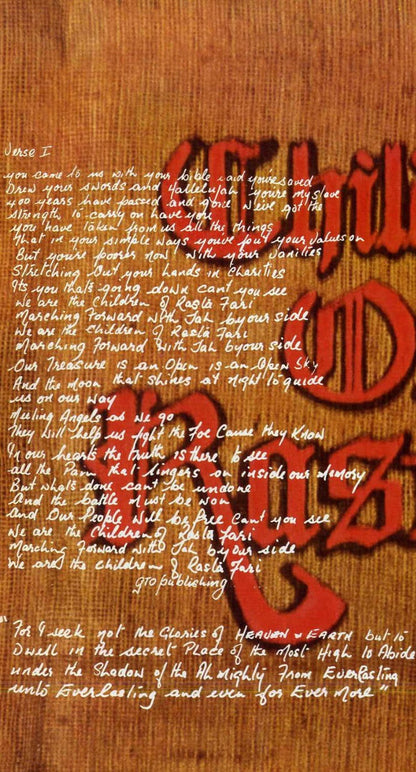 Chil
O
Ras
Verse I
you came to us with your bible said youre saved
Drew your swords and Hallelujah youre my slave
400 years have passed and gone weve got the
strength to carry on have you
you have taken from us all the things
That in your simple ways youve put your values on
But youre poorer now with your vanities
Stretching out your hands in Charities
Its you thats going down cant you see
We are the Children of Rasta Fari
Marching Forward with Jah by our side
We are the Children of Rasta Fari
Marching Forward with Jah by our side
Our Treasure is an Open is an Open Sky
And the moon that shines at night to guide
us on our way
Meeting Angels as we go
They will help us fight the Foe Cause they Know
In our hearts the truth is there to see
all the Pain that lingers on inside our memory
But whats done cant be undone
And the battle must be won
And Our People Will be free Cant you see
We are the Children of Rasta Fari
Marching Forward with Jah by our side
We are the Children of Rasta Fari
gto publishing
"For I seek not the Glories of HEAVEN & EARTH but to
Dwell in the secret Place of the Most High to Abide
under the Shadow of the Almighty From Everlasting
unto Everlasting and even for Ever More"